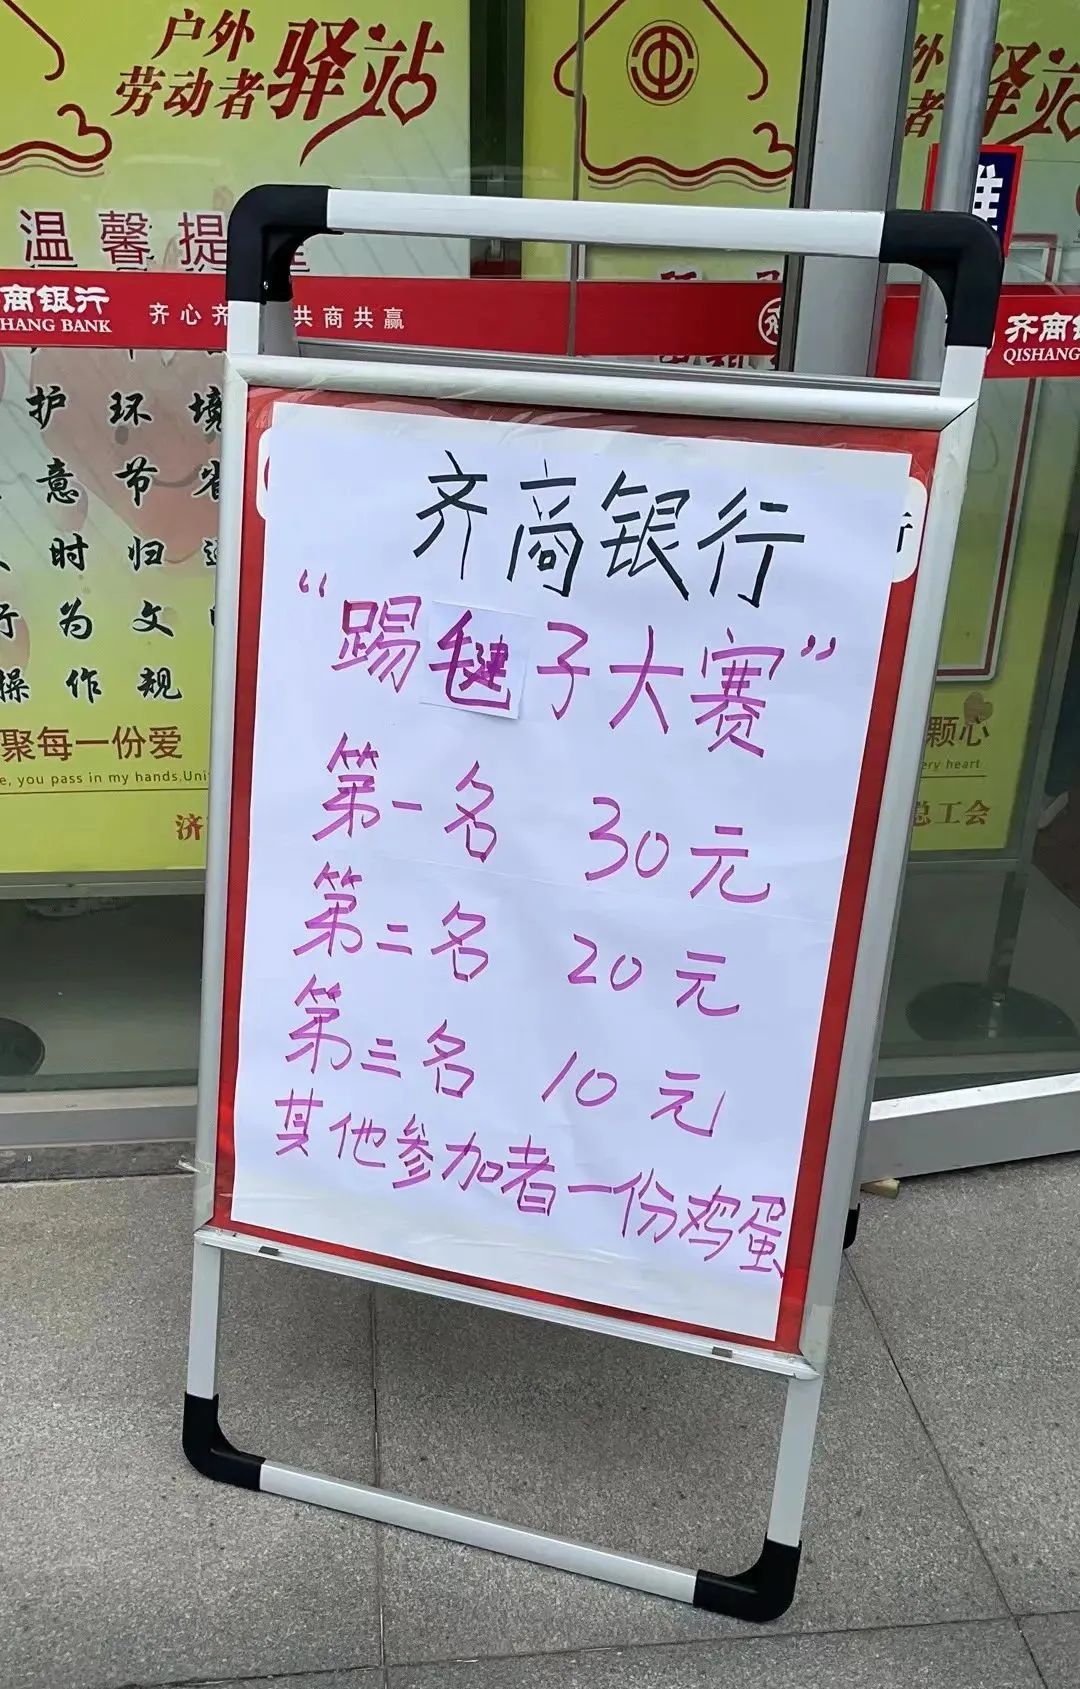 户外
劳动者驿站
温馨提
商银行
HANG BANK
齐心齐
共商共赢
护环境
意节省
时归
行为文
操作规
聚每一份爱
, you pass in my hands.Uni
济
户外
者驿站
齐商
QISHANG
颗心
ery heart
总工会
齐商银行
“踢毽子大赛”
第一名 30元
第二名 20元
第三名 10元
其他参加者一份鸡蛋